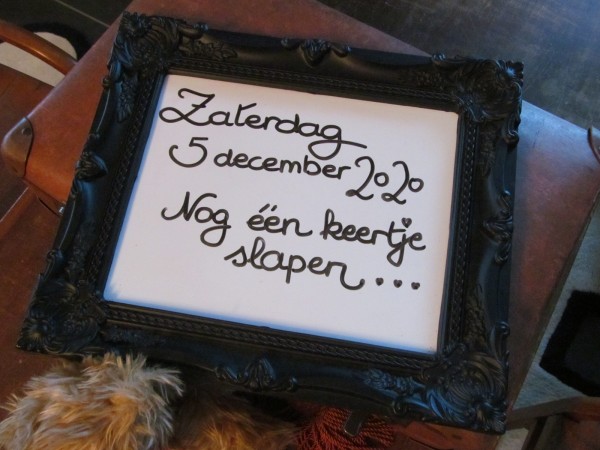 Zaterdag
5 december 2020
Nog één keertje
slapen...